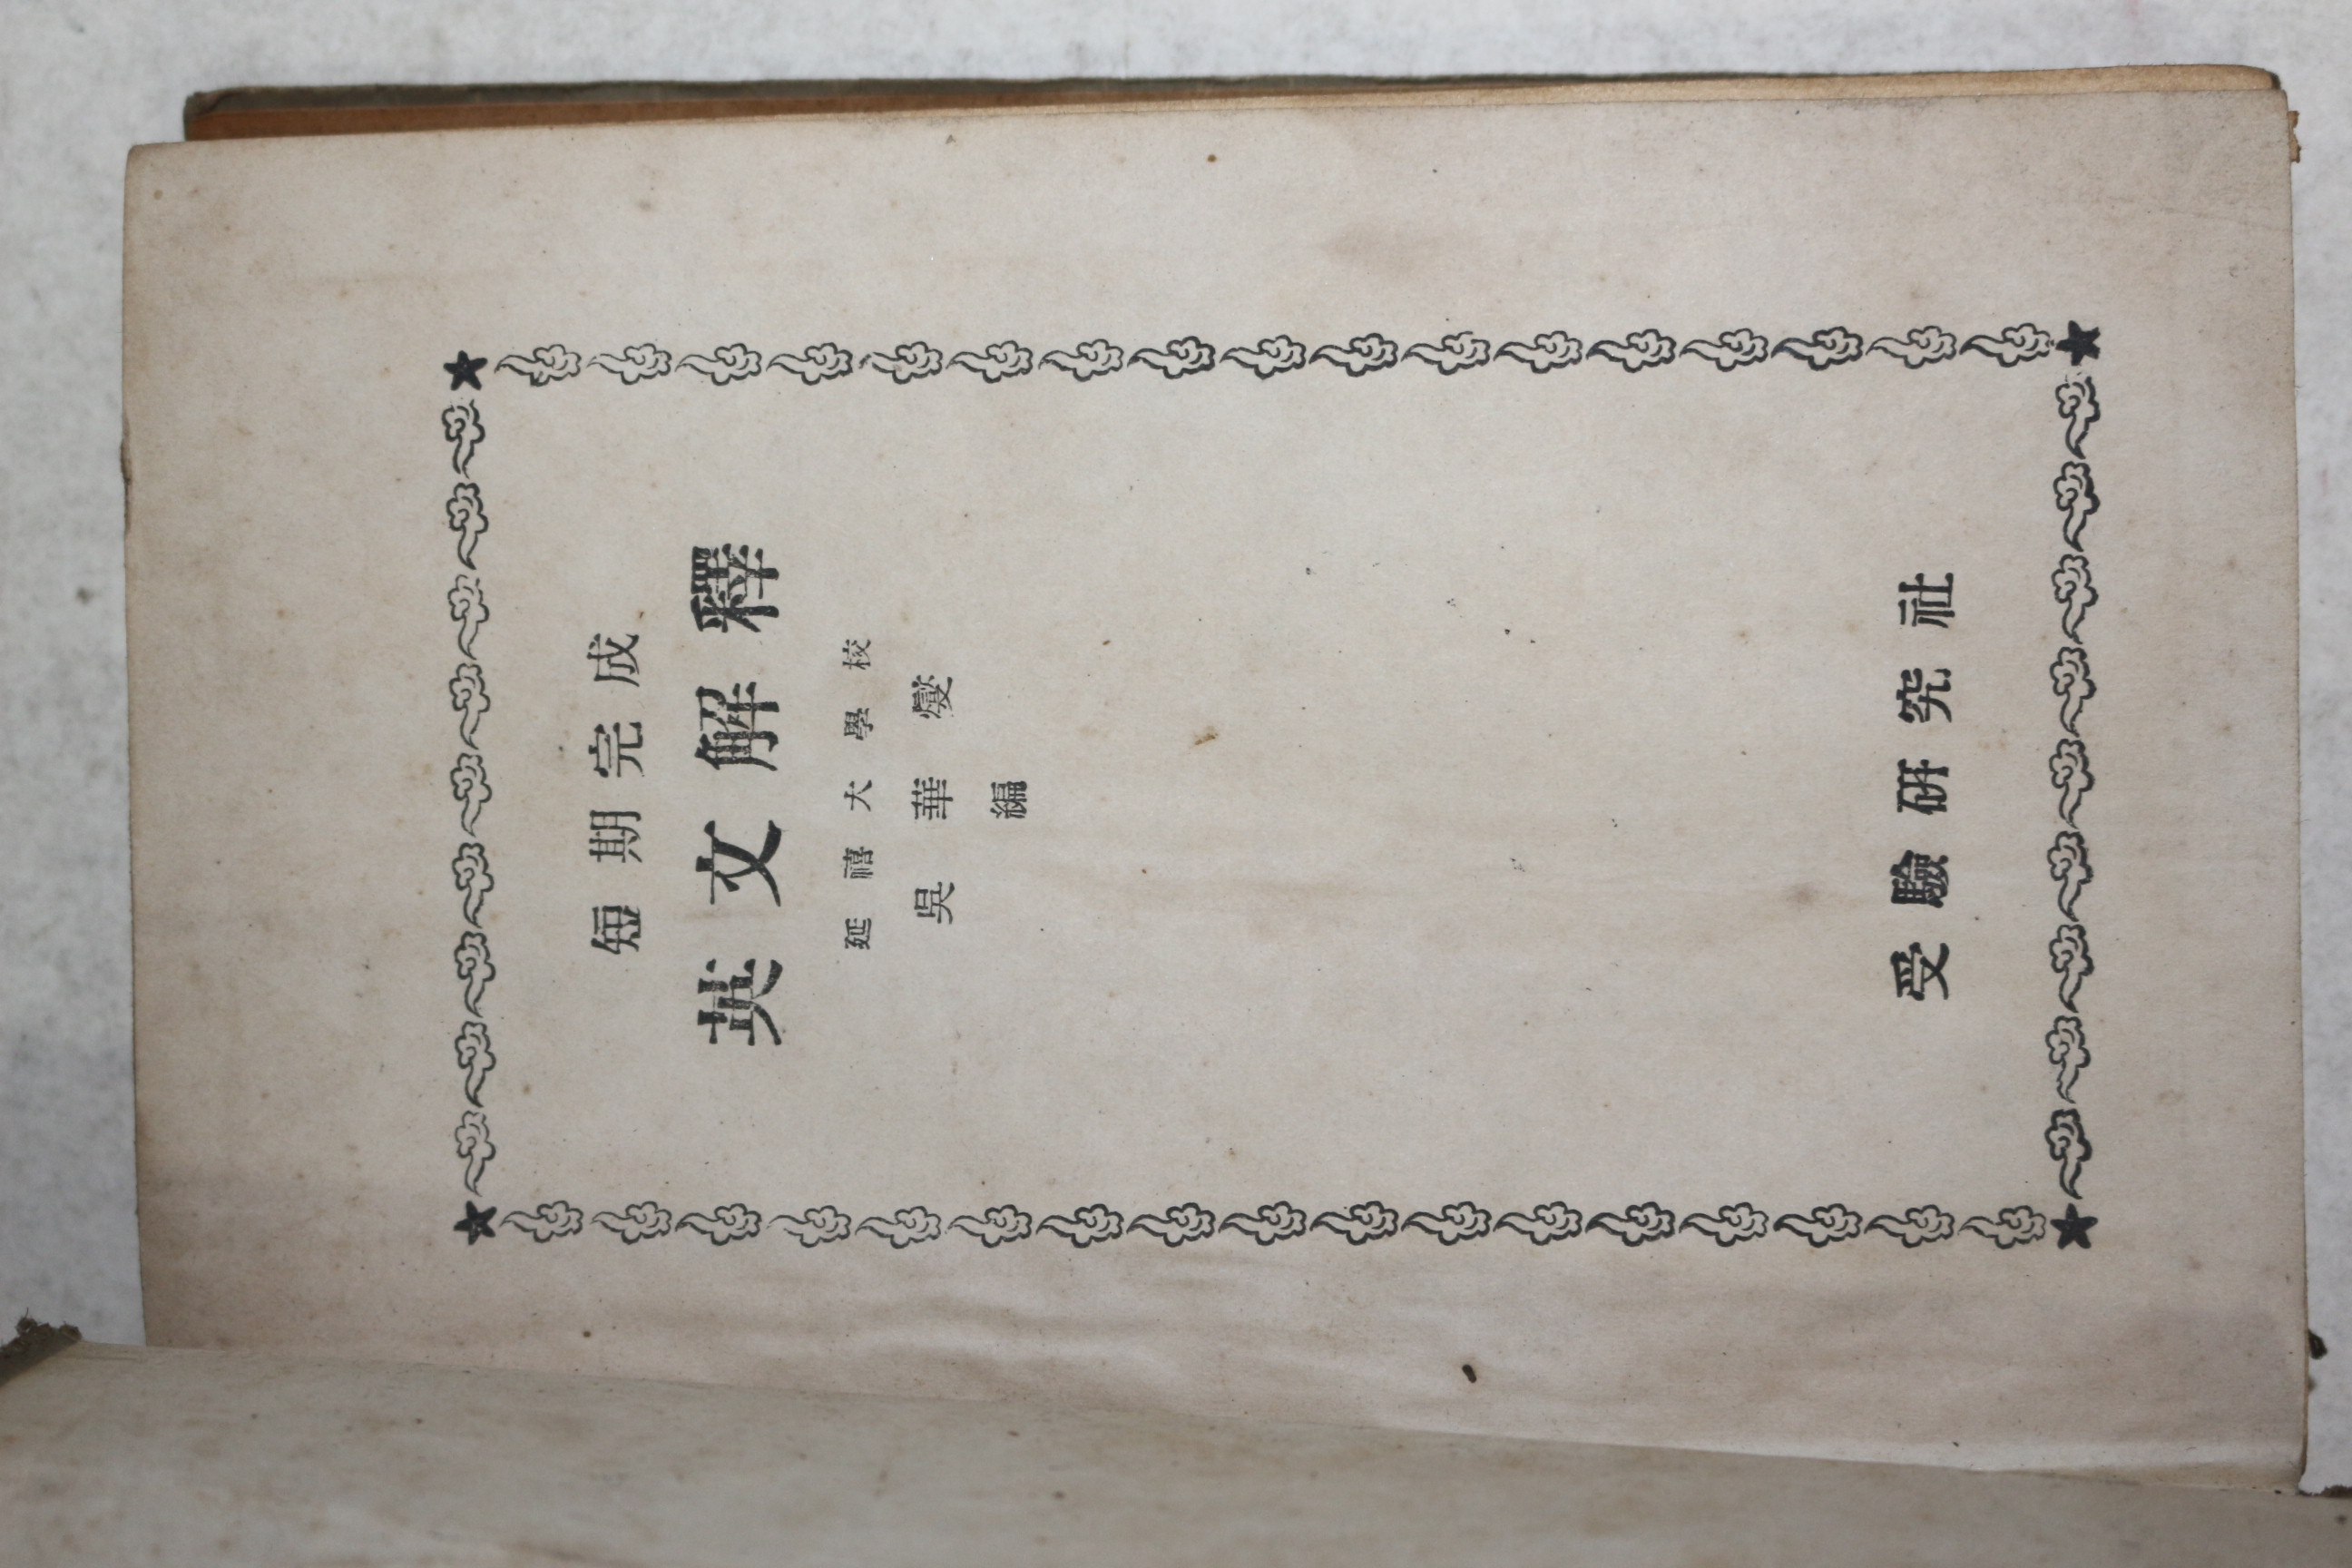 短期完成
英文解釋
延禧大學校
吳華燮
編
受驗研究社